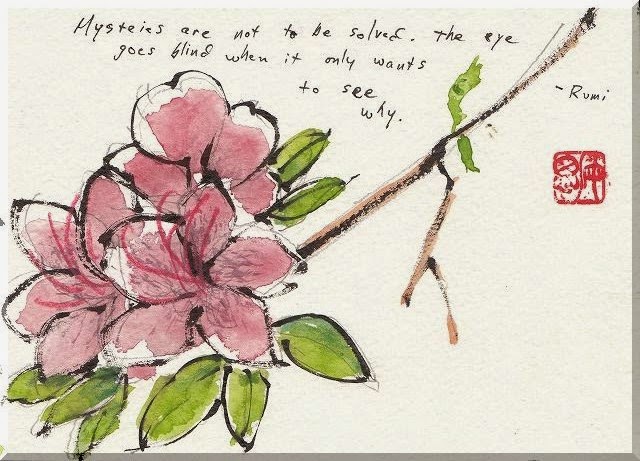 Mysteries are not to be solved. the eye
goes blind when it only wants
to see
why.
- Rumi